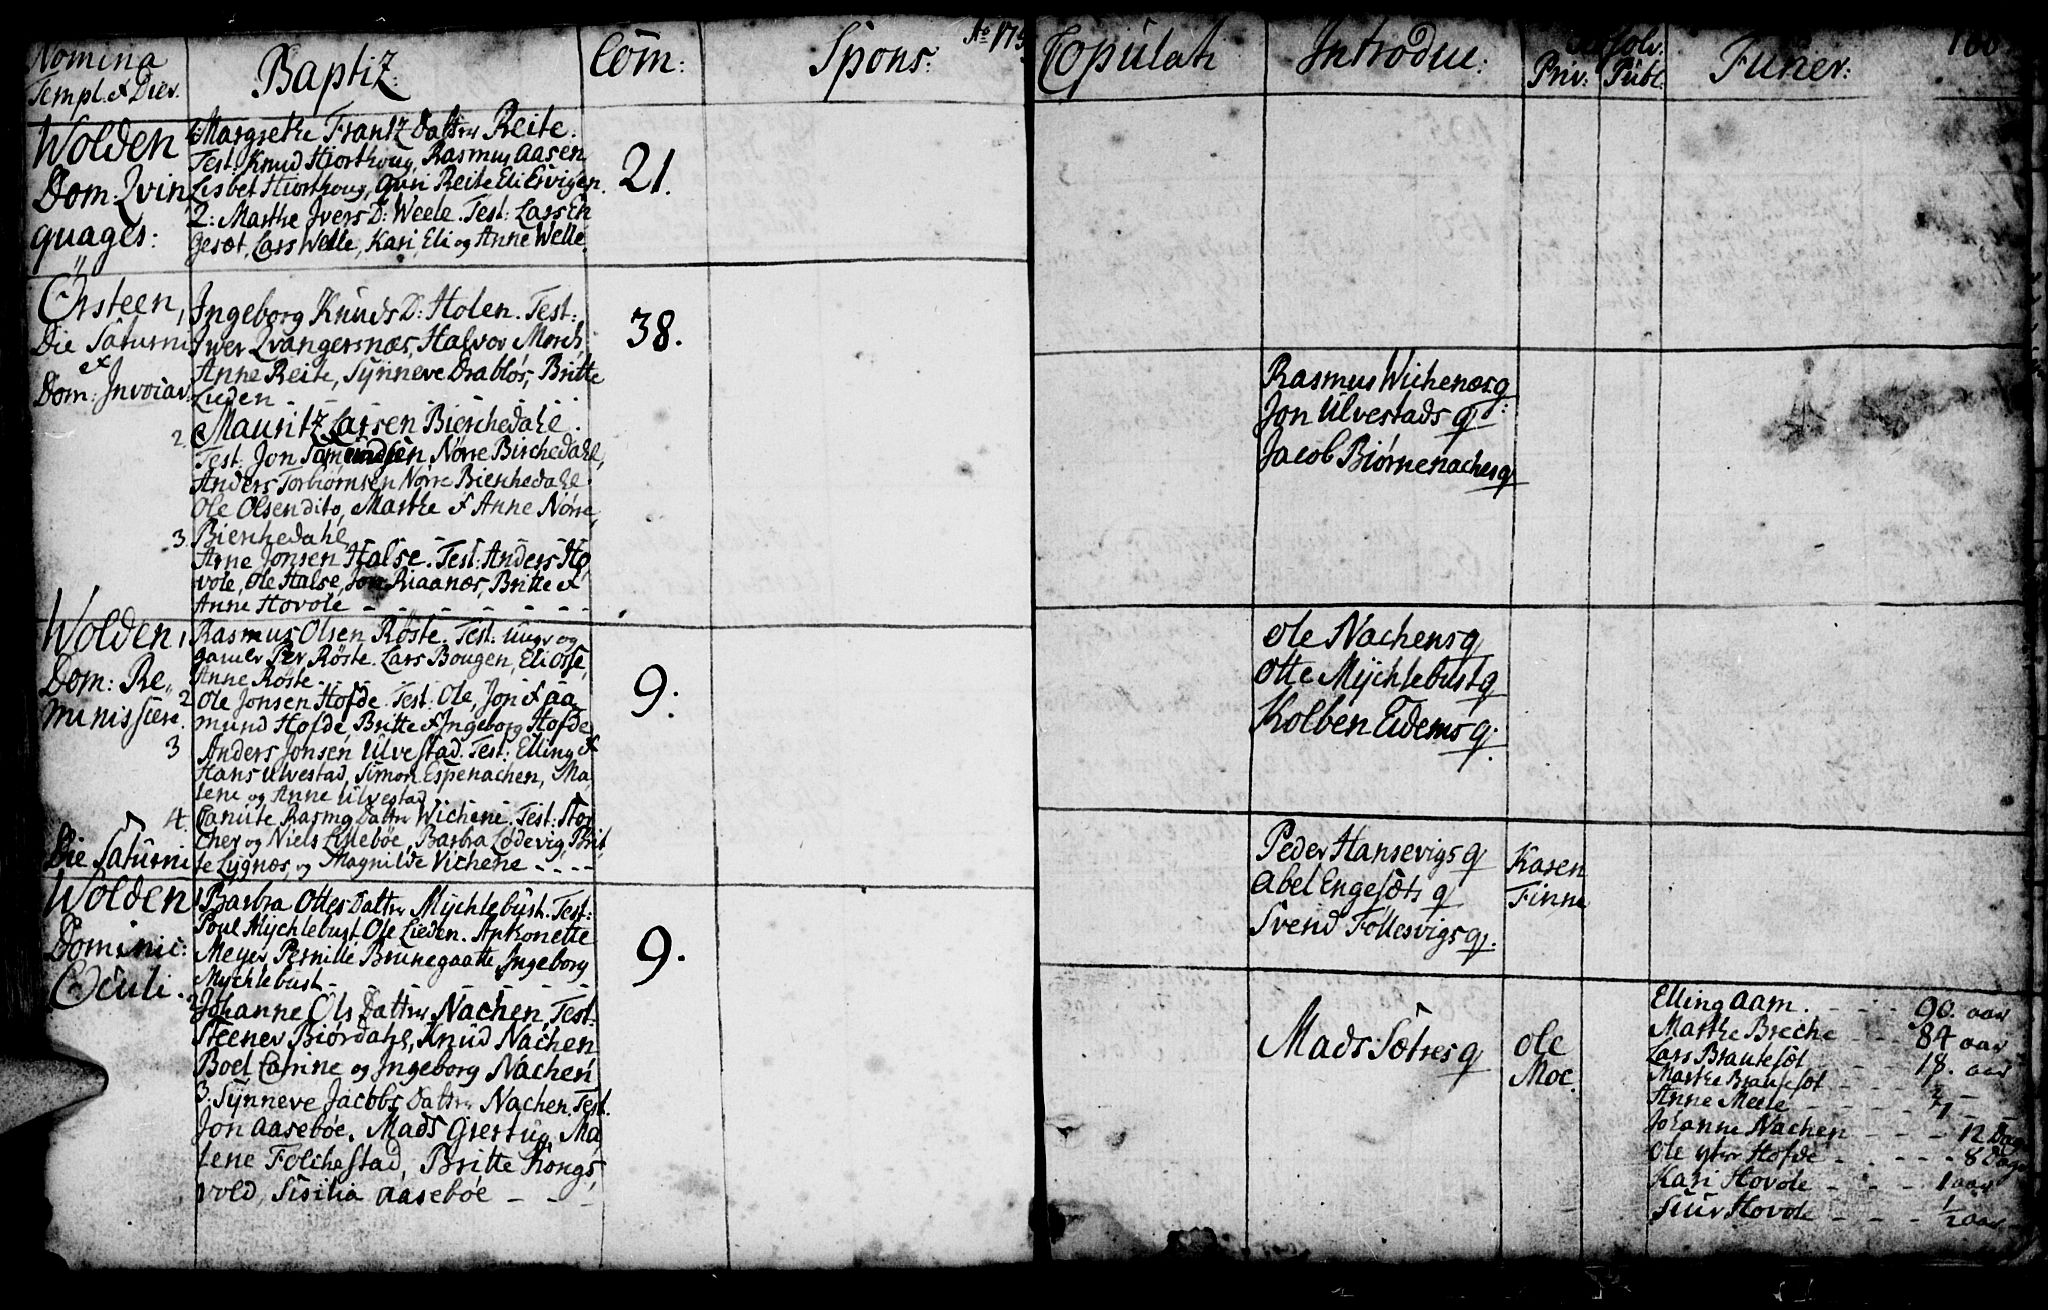 Nomina
Templ. & Dier.
Baptiz:
Com:
Spons:
Ao 175
Copulati
Introduc:
Absolv.
Priv: Publ.
Funer:
Wolden
Dom: Qvin
quages:
1. Margrethe Frantz Datter Reite.
Test: Knud Hiorthoug, Rasmus Aasen
Lisbet Hiorthoug, Guri Reite Eli Ervigen.
2: Marthe Ivers D: Weele. Test: Lars En
gesæt, Lars Welle, Kari, Eli og Anne Welle.
21.
Ørsteen,
Die Saturni
&
Dom: Invocav:
Ingeborg Knuds D: Holen. Test:
Iver Qvangersnæs, Halvor Morch,
Anne Reite, Synneve Drabløs, Britte
Lieden - - - -
2. Mauritz Larsen Bierchedahl.
Test. Jon Nørre Birchedahl,
Anders Torbiørnsen Nørre Bierchedahl
Ole Olsen dito, Marthe & Anne Nørre,
Bierchedahl
3. Arne Jonsen Halse. Test: Anders Ho,
vole, Ole Halse, Jon Riaanæs, Britte &
Anne Hovole - - - - - -
38.
Rasmus Wichenæs q
Jon Ulvestads q:
Jacob Biørnenaches q
Wolden,
Dom: Re,,
miniscere.
1 Rasmus Olsen Røste. Test: unge og
gamle Per Røste. Lars Bougen, Eli Osse,
Anne Røste - - -
2 Ole Jonsen Hofde. Test: Ole, Jon & Aa
mund Hofde, Britte & Ingeborg Hofde
3 Anders Jonsen Ulvestad. Test: Elling &
Hans Ulvestad, Simon Espenachen, Ma,
lene og Anne Ulvestad
4. Canute Rasmq Datter Wichene. Test:
og Niels Lillebøe, Barbra Lødevig, Brit,
te Lygnæs, og Magnilde Vichene - - - -
9.
Ole Nachens q
Otte Mychlebust q
Kolben Eidems q.
Die Saturni
Peder Hansevigs q
Abel Engesæts q
Svend Follesvigs q.
Karen
Finne
Wolden
Dominic:
Oculi.
1 Barbra Ottes Datter Mychlebust. Test:
Poul Mychlebust Ole Lieden. Apkonette
Meyer Pernille Brunegaatte, Ingeborg
Mychlebust - - - - -
2 Johanne Ols Datter Nachen, Test:
Steener Biørdahl, Knud Nachen
Boel Canine og Ingeborg Nachen
3. Synneve Jacobs Datter Nachen. Test.
Jon Aasebøe. Mads Giertug, Ma,
lene Folchestad, Britte Kongs,
vold, Sisilia Aasebøe - -
9.
Mads Sætres q
Ole
Moe.
Elling Aam. - - - 90. aar
Marthe Breche - - 84 aar
Lars Brautesæt - - - 18. aar
Marthe Brautesæt - - -
Anne Meele - - - -
Johanne Nachen - - - 12 Dage
Ole Hofde - - - - 8 Dage
Kari Hovole - - - 1 aar
Siur Hovole - - - 1/2 aar